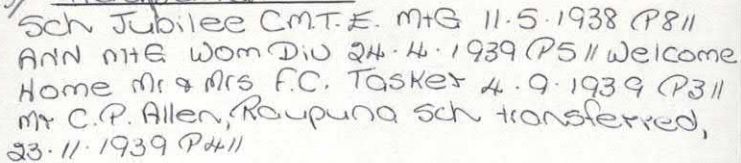 Sch Jubilee C.M.T.E. MtG 11.5.1938 (P8//
ANN MtG Wom Div 24.4.1939 (P5// Welcome
Home Mr & Mrs F.C. Tasker 4.9.1939 (P3//
Mr C.P. Allen, Raupuna Sch transferred,
23.11.1939 P4//